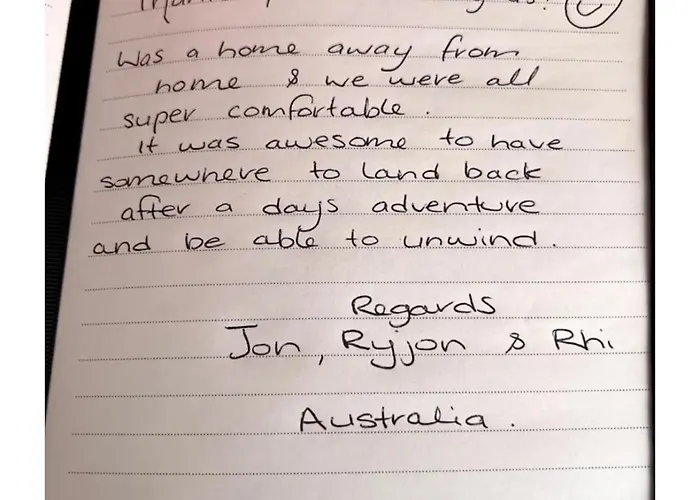 Was a home away from
home & we were all
super comfortable.
It was awesome to have
somewhere to land back
after a days adventure
and be able to unwind.
Regards
Jon, Ryjon & Rhi
Australia.